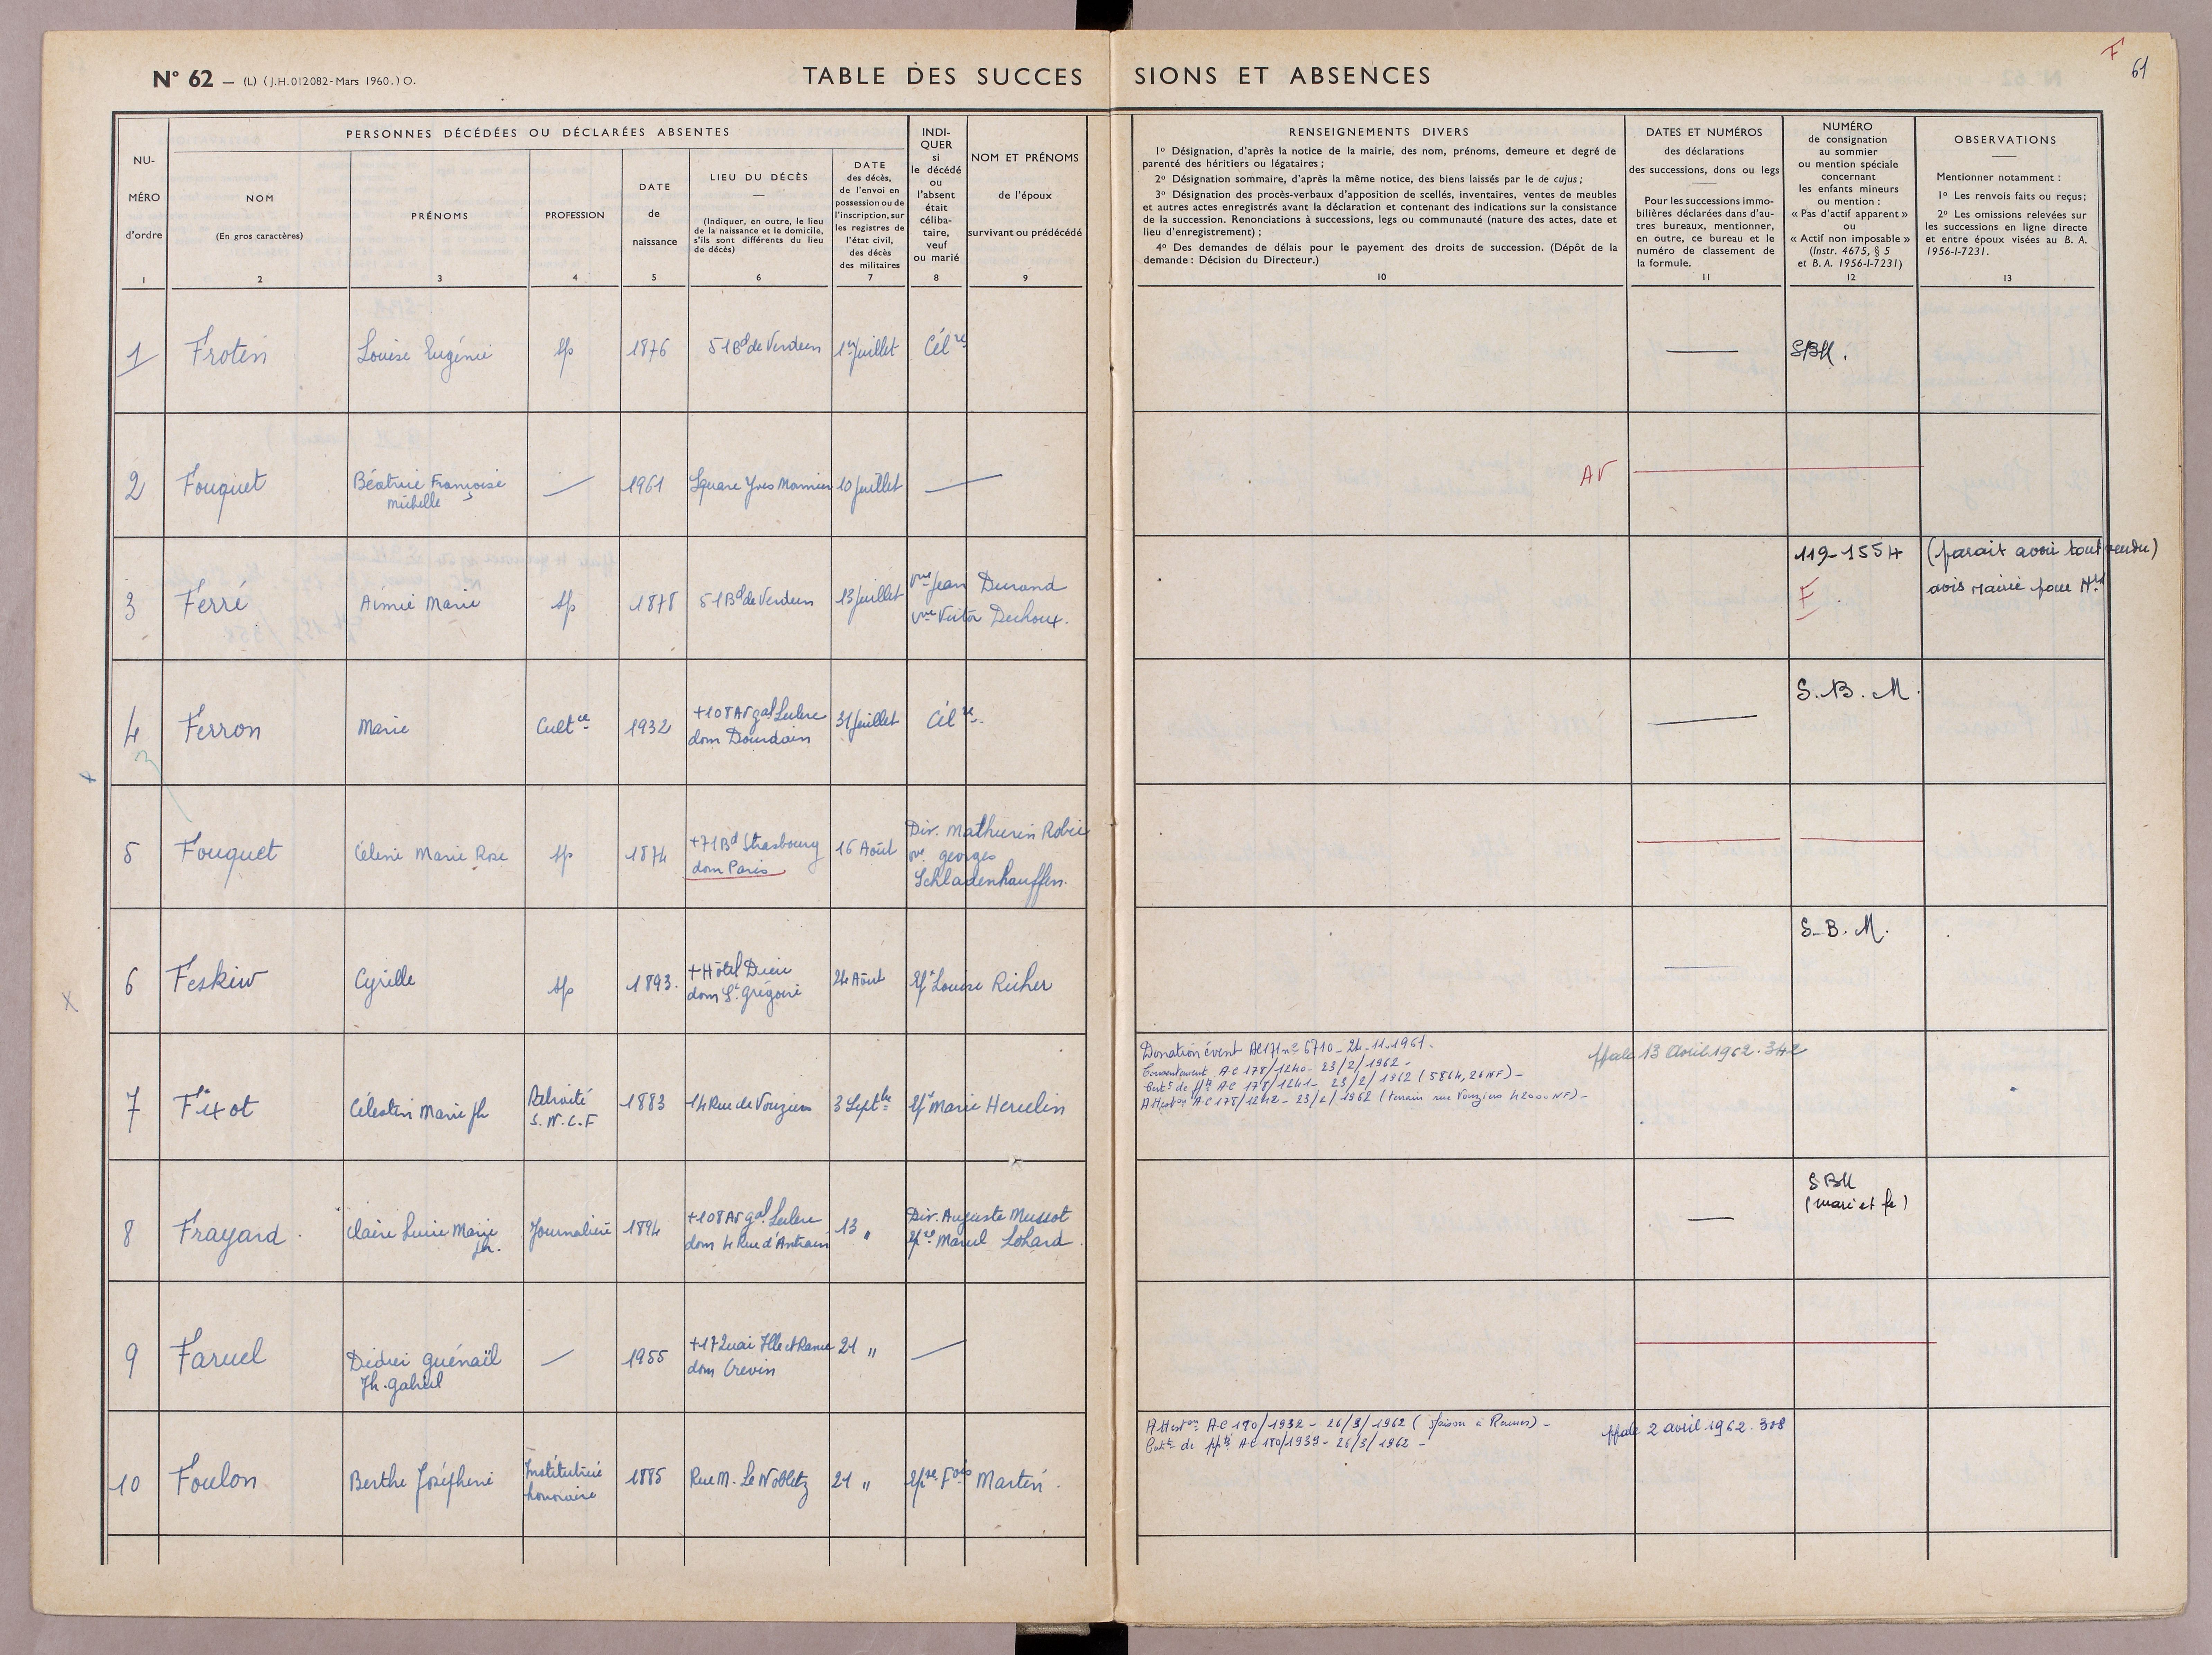 N° 62 — (L) (J.H. 012082 - Mars 1960.) O.
TABLE DES SUCCES SIONS ET ABSENCES
F
61
PERSONNES DÉCÉDÉES OU DÉCLARÉES ABSENTES
NU-
MÉRO
d'ordre
1
NOM
(En gros caractères)
2
PRÉNOMS
3
PROFESSION
4
DATE
de
naissance
5
LIEU DU DÉCÈS
(Indiquer, en outre, le lieu
de la naissance et le domicile,
s'ils sont différents du lieu
de décès)
6
DATE
des décès,
de l'envoi en
possession ou de
l'inscription, sur
les registres de
l'état civil,
des décès
des militaires
7
INDI-
QUER
si
le décédé
ou
l'absent
était
céliba-
taire,
veuf
ou marié
8
NOM ET PRÉNOMS
de l'époux
survivant ou prédécédé
9
RENSEIGNEMENTS DIVERS
1° Désignation, d'après la notice de la mairie, des nom, prénoms, demeure et degré de
parenté des héritiers ou légataires ;
2° Désignation sommaire, d'après la même notice, des biens laissés par le de cujus ;
3° Désignation des procès-verbaux d'apposition de scellés, inventaires, ventes de meubles
et autres actes enregistrés avant la déclaration et contenant des indications sur la consistance
de la succession. Renonciations à successions, legs ou communauté (nature des actes, date et
lieu d'enregistrement) ;
4° Des demandes de délais pour le payement des droits de succession. (Dépôt de la
demande : Décision du Directeur.)
10
DATES ET NUMÉROS
des déclarations
des successions, dons ou legs
Pour les successions immo-
bilières déclarées dans d'au-
tres bureaux, mentionner,
en outre, ce bureau et le
numéro de classement de
la formule.
11
NUMÉRO
de consignation
au sommier
ou mention spéciale
concernant
les enfants mineurs
ou mention :
« Pas d'actif apparent »
ou
« Actif non imposable »
(Instr. 4675, § 5
et B. A. 1956-I-7231)
12
OBSERVATIONS
Mentionner notamment :
1° Les renvois faits ou reçus ;
2° Les omissions relevées sur
les successions en ligne directe
et entre époux visées au B. A.
1956-I-7231.
13
1 Frotin Louise Eugénie sp 1876 51 Bd de Verdun 1er Juillet Célre — SBM.
2 Fouquet Béatrice Françoise — 1961 Square Yves 10 Juillet — AV
Michelle
119-1554 (parait avoir tout vendu)
3 Ferré Aimée Marie sp 1878 51 Bd de Verdun 13 Juillet Vve Jean Durand F avis mairie pour
Vve Victor Dechoux.
S.B.M.
4 Ferron Marie Cultce 1932 +108 Av gal Leclerc 31 Juillet Célre. —
dom Dourdain
5 Fouquet Céline Marie Rose sp 1874 +71 Bd Strasbourg 16 Août Div. Mathurin Robic
dom Paris ve georges
Schladenhauffen.
S.B.M.
6 Feskiw Cyrille sp 1893. +Hôtel Dieu 24 Août Ex Louise Richer —
dom St. Grégoire
Donation évent AC 171 n° 6710 - 24-11-1961. 13 Avril 1962. 342
Consentement AC 178/1240 - 23/2/1962 -
AC 178/1241 - 23/2/1962 (5864,26 NF) -
AC 178/1242 - 23/2/1962 (terrain rue Vouziers 42000 NF) -
7 Fixot Célestin Marie Jh Retraité 1883 14 Rue de Vouziers 3 Septbre Ex Marie Hervelin
S.N.C.F
SBM
(mari et fe)
8 Frayard Claire Lucie Marie Journalière 1894 +108 Av gal Leclerc 13 " Div. Auguste Mussot —
Jh. dom 4 Rue d'Antrain Epse Marcel Lohard.
9 Faruel Didier Guénaïl — 1955 +17 Quai Ille et Rance 21 " —
Jh. gabriel dom Crevin
AC 180/1938 - 26/3/1962 (maison à Rennes) - 2 avril 1962. 308
AC 180/1939 - 26/3/1962 -
10 Foulon Berthe Joséphine Institutrice 1885 Rue M. Le Nobletz 21 " Epse Fois Martin.
honoraire